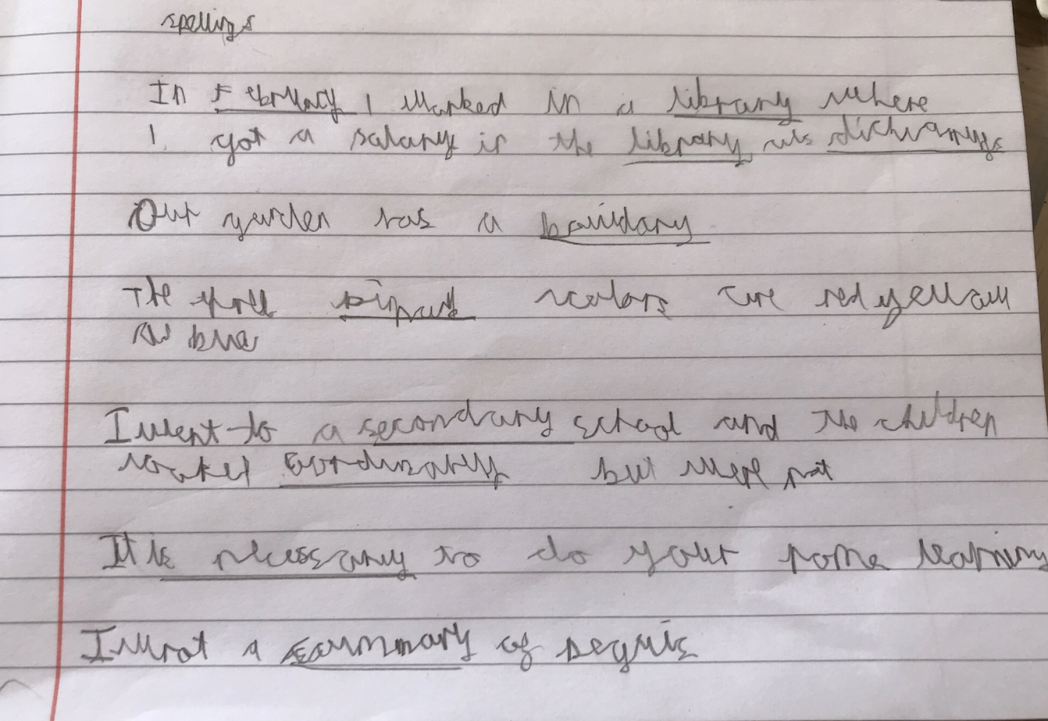 spellings
In February I worked in a library where
I got a salary in the library was dictionarys
Our garden has a boundary
The three colors are red yellow
and blue
I went to a secondary school and the children
looked but were not
It is necessary to do your home learning
I wrot a summary of